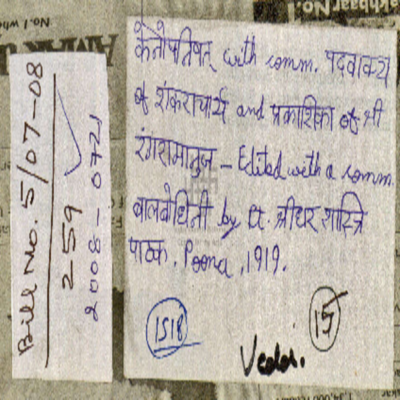 No. 1 who
akhbaar No.1
Bill No. 5/07-08
259
2008-0721
केनोपनिषत् with comm. पदवाक्य
of शंकराचार्य and प्रकाशिका of श्री
रंगरामानुज - Edited with a comm.
बालबोधिनी by Pt. श्रीधर शास्त्रि
पाठक, Poona, 1919.
1518
15
Vedā.